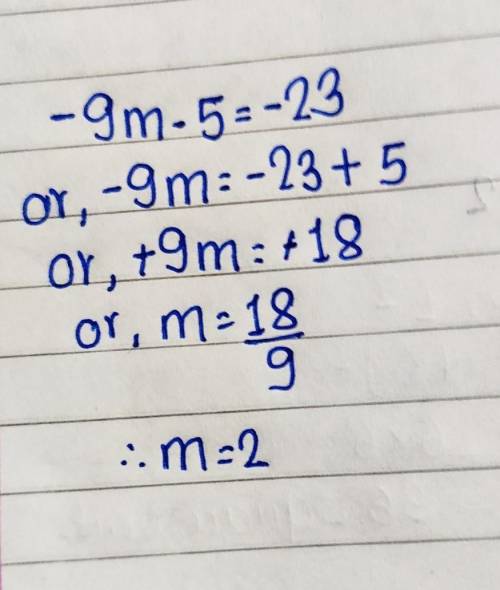 -9m-5=-23
or, -9m=-23+5
or, +9m=+18
or, m=18/9
∴m=2